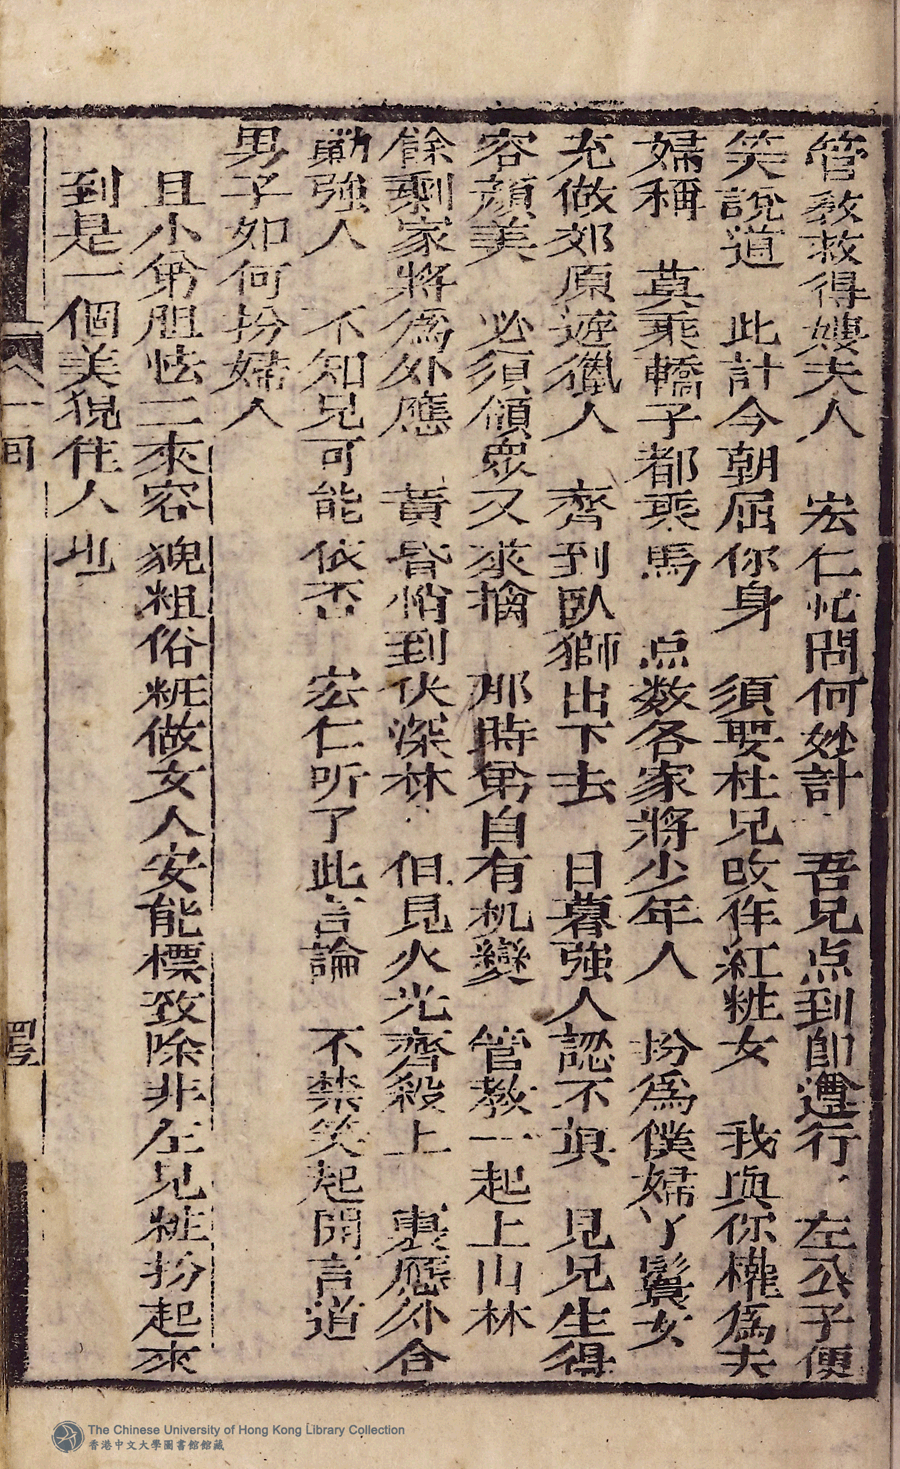 管教救得嫂夫人　宏仁忙問何妙計　吾兄点到即遵行　左公子便
笑說道　此計今朝屈你身　須娶杜兄改作紅粧女　我與你權爲夫
婦稱　莫乘轎子都乘馬　点数各家將少年人　扮爲僕婦丫鬟女
充做郊原遊獵人　齊到臥獅出下去　日暮強人認不真　見兄生得
容顏美　必須傾衆又來擒　那時弟自有机變　管教一起上山林
餘剩家將爲外應　黃昏悄到伏深林　但見火光齊殺上　裏應外合
勦強人　不知兄可能依否　宏仁听了此言論　不禁笑起開言道
男子如何扮婦人
且小弟胆怯二來容貌粗俗粧做女人安能標致除非左兄粧扮起來
到是一個美貌佳人也
卷一回
四
The Chinese University of Hong Kong Library Collection
香港中文大學圖書館館藏